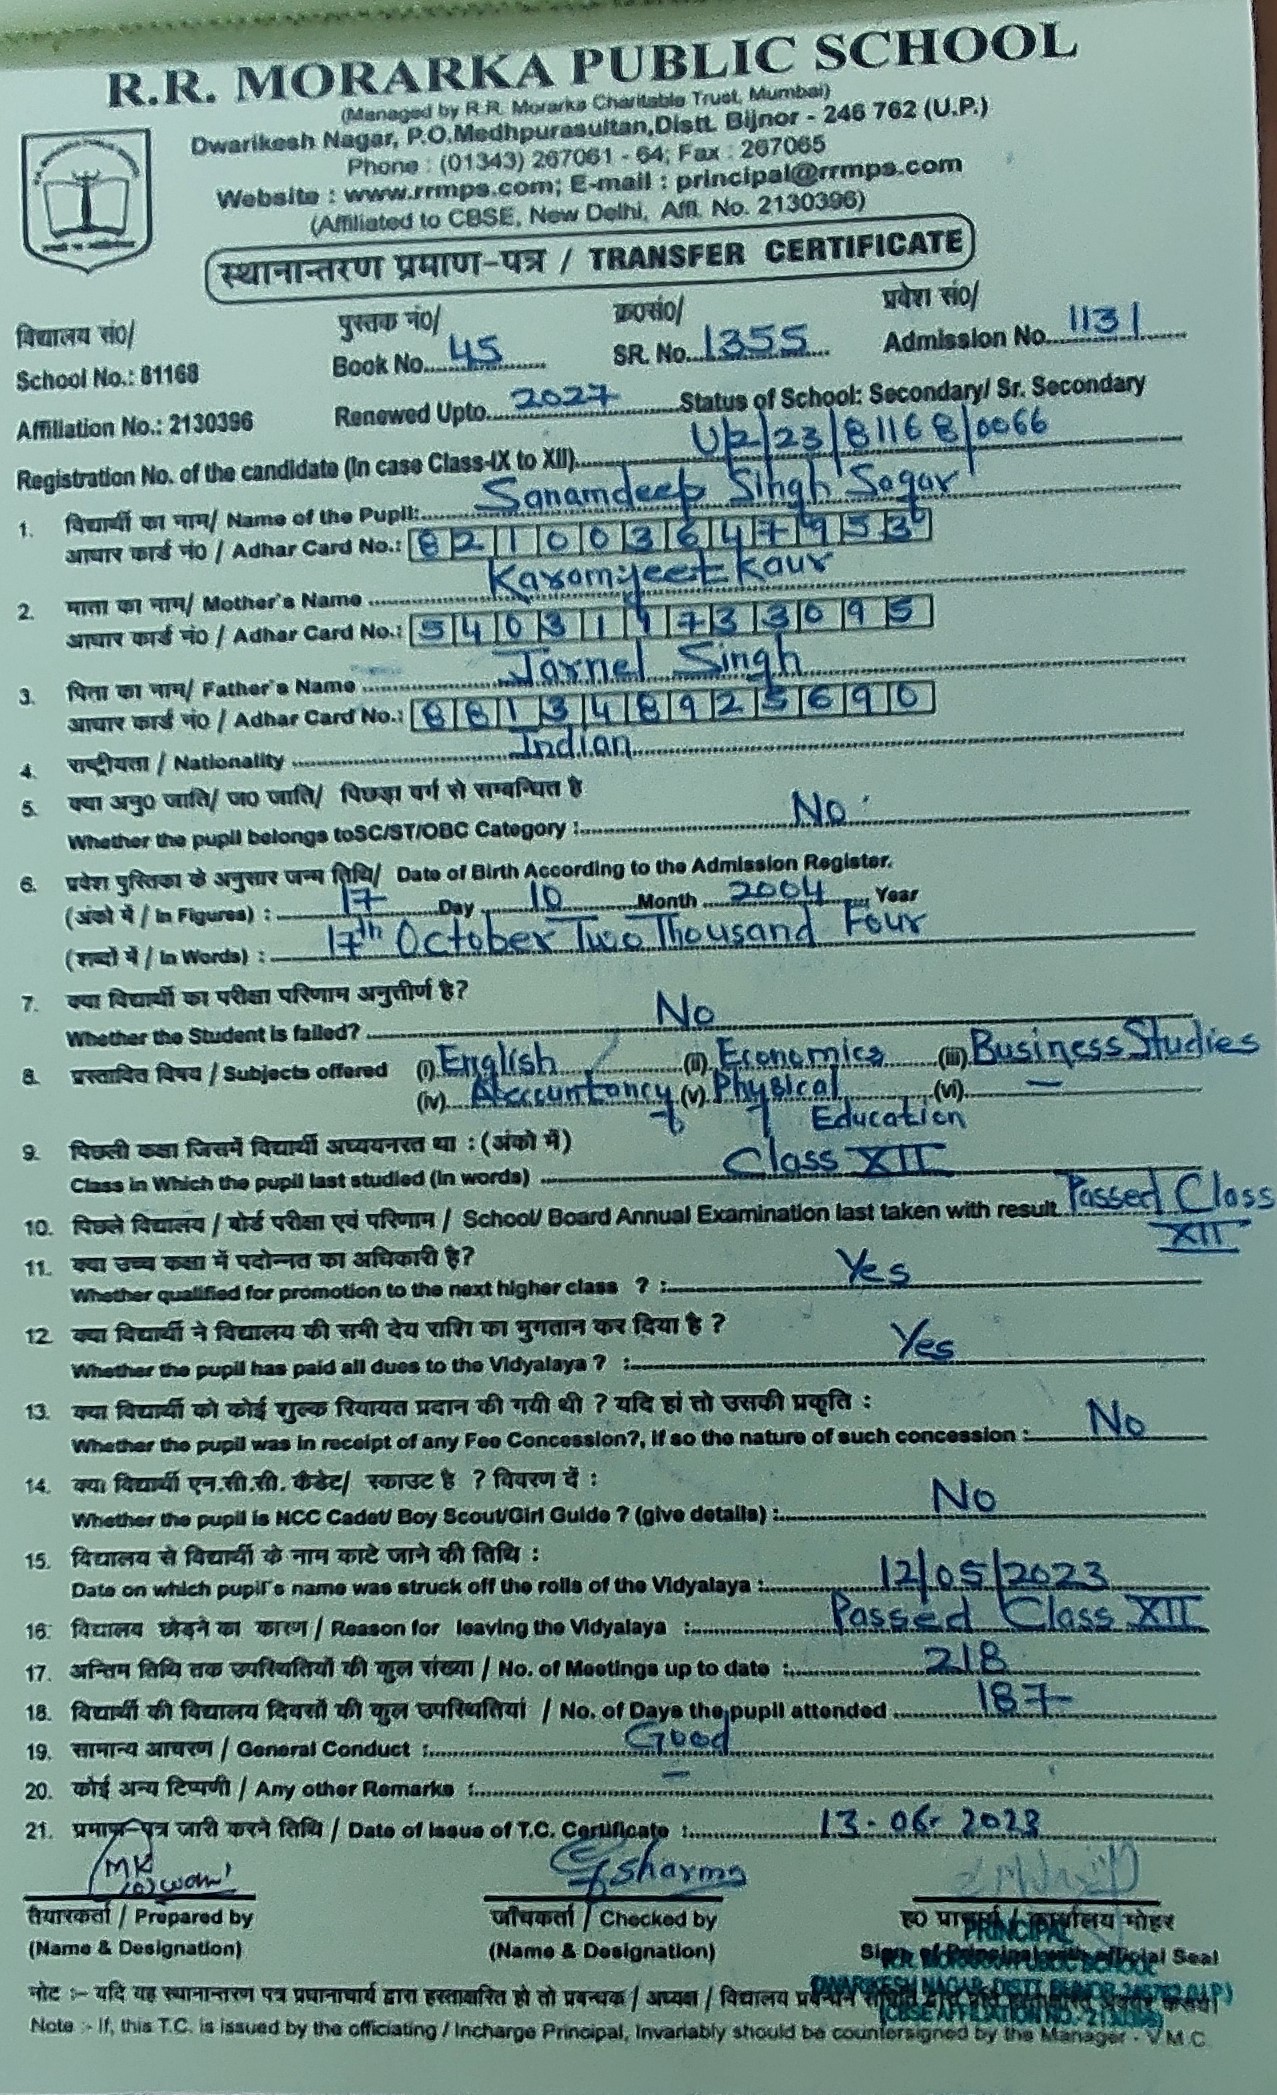 R.R. MORARKA PUBLIC SCHOOL
(Managed by R.R. Morarka Charitable Trust, Mumbai)
Dwarikesh Nagar, P.O.Medhpurasultan,Distt. Bijnor - 246 762 (U.P.)
Phone : (01343) 267061 - 64; Fax : 267065
Website : www.rrmps.com; E-mail : principal@rrmps.com
(Affiliated to CBSE, New Delhi, Affl. No. 2130396)
स्थानान्तरण प्रमाण-पत्र / TRANSFER CERTIFICATE
विद्यालय सं०/ पुस्तक नं०/ क्र०सं०/ प्रवेश सं०/
School No.: 81168 Book No. 45 SR. No. 1355 Admission No. 1131
Affiliation No.: 2130396 Renewed Upto 2027 Status of School: Secondary/ Sr. Secondary
Registration No. of the candidate (In case Class-IX to XII) U2/23/81168/0066
1. विद्यार्थी का नाम/ Name of the Pupil: Sanamdeep Singh Sagar
आधार कार्ड नं० / Adhar Card No.: 8 2 1 0 0 3 6 4 7 9 5 3
2. माता का नाम/ Mother's Name Karamjeet kaur
आधार कार्ड नं० / Adhar Card No.: 5 4 0 3 1 9 7 3 3 0 9 5
3. पिता का नाम/ Father's Name Jarnel Singh
आधार कार्ड नं० / Adhar Card No.: 8 8 1 3 4 8 9 2 5 6 9 0
4. राष्ट्रीयता / Nationality Indian
5. क्या अनु० जाति/ ज० जाति/ पिछड़ा वर्ग से सम्बन्धित है
Whether the pupil belongs toSC/ST/OBC Category : No
6. प्रवेश पुस्तिका के अनुसार जन्म तिथि/ Date of Birth According to the Admission Register.
(अंको में / In Figures) : 17 Day 10 Month 2004 Year
(शब्दों में / In Words) : 17th October Two Thousand Four
7. क्या विद्यार्थी का परीक्षा परिणाम अनुत्तीर्ण है?
Whether the Student is failed? No
8. प्रस्तावित विषय / Subjects offered (i) English (ii) Economics (iii) Business Studies
(iv) Accountancy (v) Physical (vi) —
Education
9. पिछली कक्षा जिसमें विद्यार्थी अध्ययनरत था : (अंको में)
Class in Which the pupil last studied (in words) Class XII
10. पिछले विद्यालय / बोर्ड परीक्षा एवं परिणाम / School/ Board Annual Examination last taken with result Passed Class
XII
11. क्या उच्च कक्षा में पदोन्नत का अधिकारी है?
Whether qualified for promotion to the next higher class ? : Yes
12. क्या विद्यार्थी ने विद्यालय की सभी देय राशि का भुगतान कर दिया है ?
Whether the pupil has paid all dues to the Vidyalaya ? : Yes
13. क्या विद्यार्थी को कोई शुल्क रियायत प्रदान की गयी थी ? यदि हां तो उसकी प्रकृति :
Whether the pupil was in receipt of any Fee Concession?, if so the nature of such concession : No
14. क्या विद्यार्थी एन.सी.सी. कैडेट/ स्काउट है ? विवरण दें :
Whether the pupil is NCC Cadet/ Boy Scout/Girl Guide ? (give details) : No
15. विद्यालय से विद्यार्थी के नाम काटे जाने की तिथि :
Date on which pupil's name was struck off the rolls of the Vidyalaya : 12/05/2023
16. विद्यालय छोड़ने का कारण / Reason for leaving the Vidyalaya : Passed Class XII
17. अन्तिम तिथि तक उपस्थितियों की कुल संख्या / No. of Meetings up to date : 218
18. विद्यार्थी की विद्यालय दिवसों की कुल उपस्थितियां / No. of Days the pupil attended 187
19. सामान्य आचरण / General Conduct : Good
20. कोई अन्य टिप्पणी / Any other Remarks : —
21. प्रमाण पत्र जारी करने तिथि / Date of issue of T.C. Certificate : 13-06-2023
MK Sharma
तैयारकर्ता / Prepared by जाँचकर्ता / Checked by ह० प्राचार्य / कार्यालय मोहर
PRINCIPAL
(Name & Designation) (Name & Designation) Sign of Principal with official Seal
R.R. MORARKA PUBLIC SCHOOL
DWARIKESH NAGAR, DISTT. BIJNOR-246762 (U.P.)
(CBSE AFFILIATION NO.- 2130396)
नोट :- यदि यह स्थानान्तरण पत्र प्रधानाचार्य द्वारा हस्ताक्षरित हो तो प्रबन्धक / अध्यक्ष / विद्यालय प्रबन्धन
Note :- If, this T.C. is issued by the officiating / Incharge Principal, Invariably should be countersigned by the Manager - V.M.C.